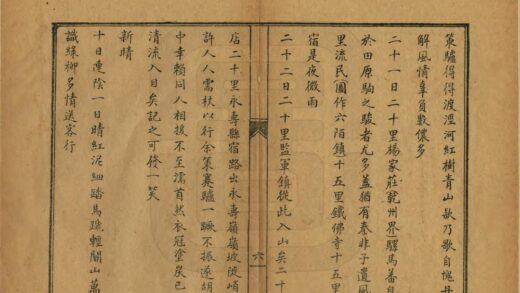 策驢得得渡涇河紅樹青山欸乃歌自愧
解風情辜負數儂多
二十一日二十里楊家莊(乾州界)驛馬蕃
於田原駒之駿者尤多蓋猶有秦非子遺風
里流民(圖作六陌鎮)十五里鐵佛寺十五里
宿是夜微雨
二十二日二十里監軍鎮從此入山矣二十
六
店二十里永壽縣宿路出永壽嶺嶺坡陡峭
許人人需扶以行余策蹇驢一蹶不振遂胡
中幸賴同人相援不至濡首然衣冠塗炭已
清流入目矣記之可發一笑
新晴
十日連陰一日晴紅泥細踏馬蹏輕關山萬
識綠柳多情送客行